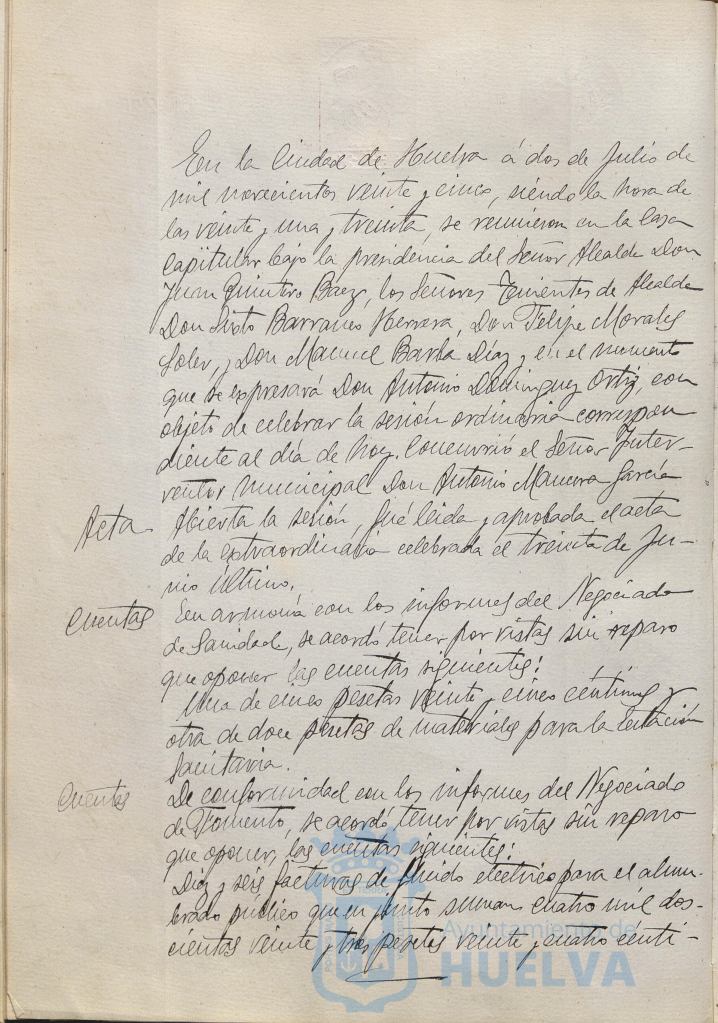 En la Ciudad de Huelva á dos de Julio de
mil novecientos veinte y cinco, siendo la hora de
las veinte y una y treinta, se reunieron en la Casa
Capitular bajo la presidencia del Señor Alcalde Don
Juan Quintero Baez, los Señores Tenientes de Alcalde
Don Sixto Barranco Herrera, Don Felipe Morales
Soler, y Don Manuel Barba Díaz y en el momento
que se expresará Don Antonio Domínguez Ortiz, con
objeto de celebrar la sesión ordinaria correspon
diente al día de hoy. Concurrió el Señor Inter-
ventor municipal Don Antonio García
Acta
Abierta la sesión, fué leida y aprobada el acta
de la extraordinaria celebrada el treinta de Ju-
nio último.
Cuentas
En armonía con los informes del Negociado
de Sanidad, se acordó tener por vistas sin reparo
que oponer las cuentas siguientes:
Una de cinco pesetas veinte y cinco céntimos y
otra de doce pesetas de materiales para la Estación
Sanitaria.
Cuentas
De conformidad con los informes del Negociado
de Fomento, se acordó tener por vistas sin reparo
que oponer, las cuentas siguientes:
Diez y seis facturas de fluido eléctrico para el alum-
brado público que en junto suman cuatro mil dos-
cientas veinte y tres pesetas veinte y cuatro centi-
Ayuntamiento de
HUELVA